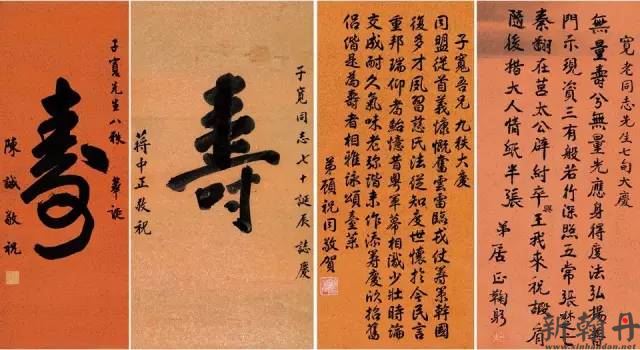 子寬先生八秩 華誕
壽
陳誠敬祝
子寬同志七十誕辰誌慶
壽
蔣中正敬祝
子寬吾兄 九秩大慶
同盟從首義慷慨奮雲雷臨戎仗籌策幹國
復多才夙習慈民法從知度世懷於今民言
重邦瑞仰耆鮐憶昔粵軍幕相識少壯時論
交成耐久氣味老弥諧聿作添壽慶欣拈舊
侶偕是為壽者相雅詠頌臺萊
弟顧祝同敬賀
寬老同志先生七旬大慶
無量壽兮無量光應身得度法弘揚普
門示現資三有般若行深照五常張
秦翻在莒太公辟紂卒興王我來祝嘏肩
隨後楷大人情紙半張
弟居正鞠躬
新翰丹
www.xinhandan.net